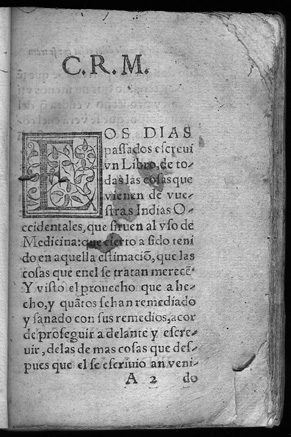 C.R.M.
LOS DIAS
passados escreui
vn Libro, de to-
das las cosas que
vienen de vue-
stras Indias O-
ccidentales, que siruen al vso de
Medicina: que cierto a sido teni
do en aquella estimaciõ, que las
cosas que enel se tratan merecẽ
Y visto el prouecho que a he-
cho, y quãtos se han remediado
y sanado con sus remedios, acor
de proseguir a delante y escre-
uir, delas de mas cosas que des-
pues que el se escriuio an veni-
A 2 do